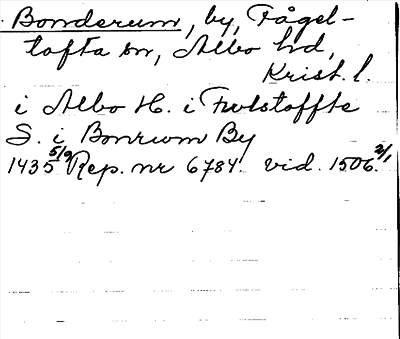 Bonderum, by, Fågel-
tofta sn, Albo hd,
Krist. l.
i Albo H. i Fwlstoffte
S. i Bonrwm By
1435 5/9 Rep. nr 6784. vid. 1506 2/1